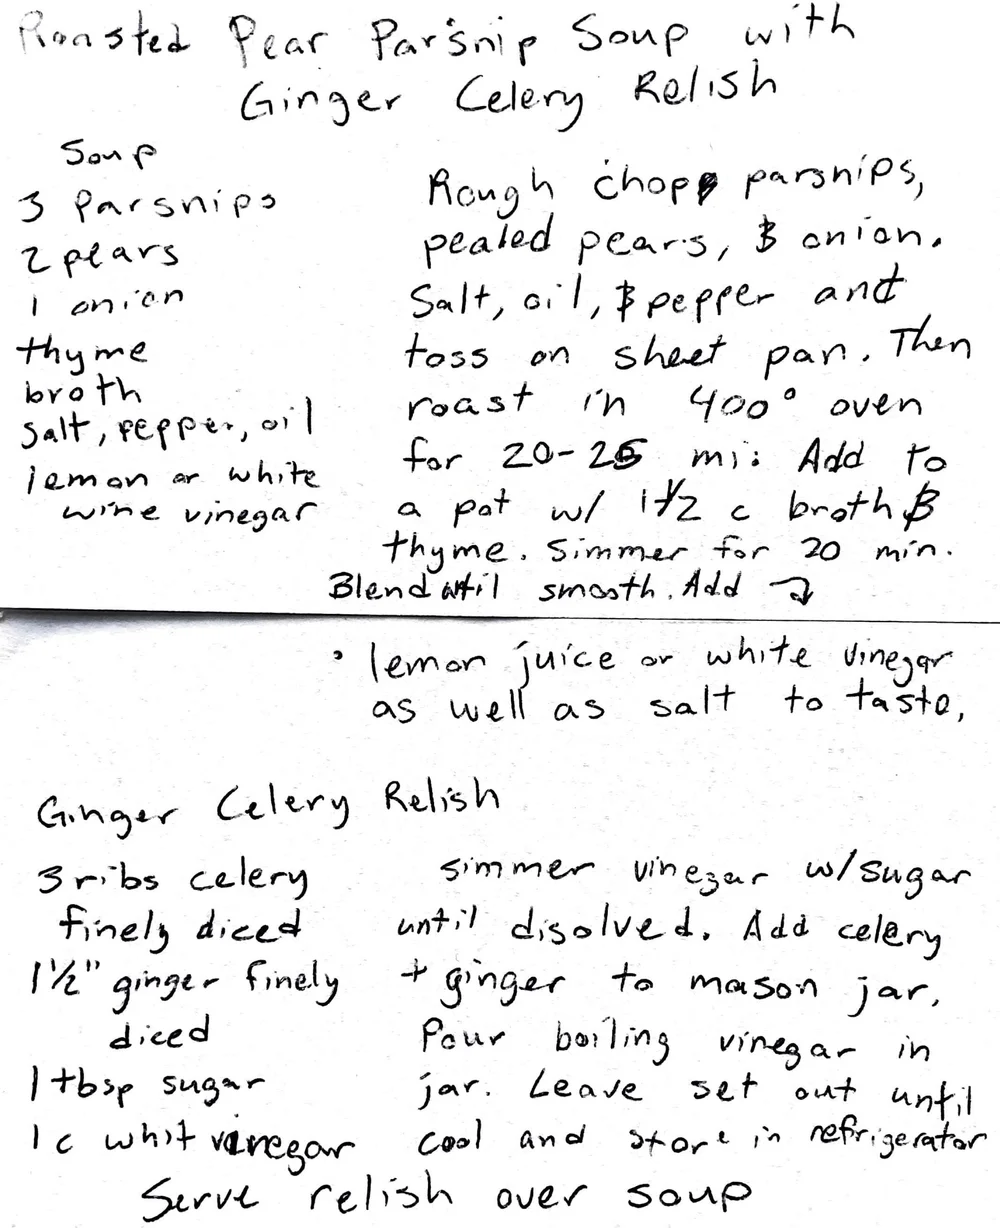 Roasted Pear Parsnip Soup with
Ginger Celery Relish
Soup
3 Parsnips
2 pears
1 onion
thyme
broth
salt, pepper, oil
lemon or white
wine vinegar
Rough chop parsnips,
pealed pears, & onion.
Salt, oil, & pepper and
toss on sheet pan. Then
roast in 400° oven
for 20-25 mi: Add to
a pot w/ 1 1/2 c broth &
thyme. Simmer for 20 min.
Blend until smooth. Add →
• lemon juice or white vinegar
as well as salt to taste,
Ginger Celery Relish
3 ribs celery
finely diced
1 1/2" ginger finely
diced
1 tbsp sugar
1 c whit vinegar
simmer vinegar w/sugar
until disolved. Add celery
+ ginger to mason jar.
Pour boiling vinegar in
jar. Leave set out until
cool and store in refrigerator
Serve relish over soup